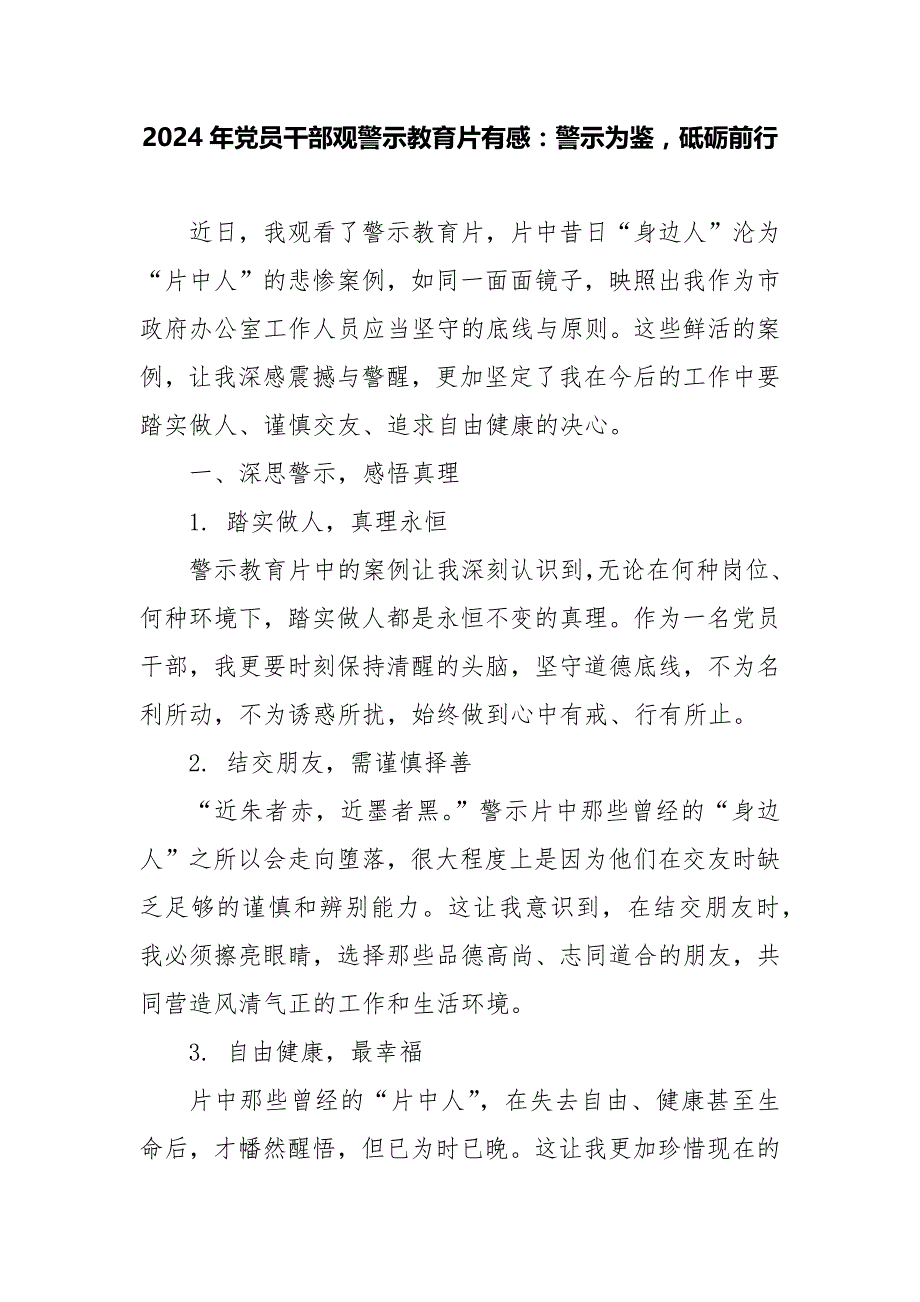 2024 年党员干部观警示教育片有感：警示为鉴，砥砺前行
近日，我观看了警示教育片，片中昔日“身边人”沦为
“片中人”的悲惨案例，如同一面面镜子，映照出我作为市
政府办公室工作人员应当坚守的底线与原则。这些鲜活的案
例，让我深感震撼与警醒，更加坚定了我在今后的工作中要
踏实做人、谨慎交友、追求自由健康的决心。
一、深思警示，感悟真理
1. 踏实做人，真理永恒
警示教育片中的案例让我深刻认识到，无论在何种岗位、
何种环境下，踏实做人都是永恒不变的真理。作为一名党员
干部，我更要时刻保持清醒的头脑，坚守道德底线，不为名
利所动，不为诱惑所扰，始终做到心中有戒、行有所止。
2. 结交朋友，需谨慎择善
“近朱者赤，近墨者黑。”警示片中那些曾经的“身边
人”之所以会走向堕落，很大程度上是因为他们在交友时缺
乏足够的谨慎和辨别能力。这让我意识到，在结交朋友时，
我必须擦亮眼睛，选择那些品德高尚、志同道合的朋友，共
同营造风清气正的工作和生活环境。
3. 自由健康，最幸福
片中那些曾经的“片中人”，在失去自由、健康甚至生
命后，才幡然醒悟，但已为时已晚。这让我更加珍惜现在的